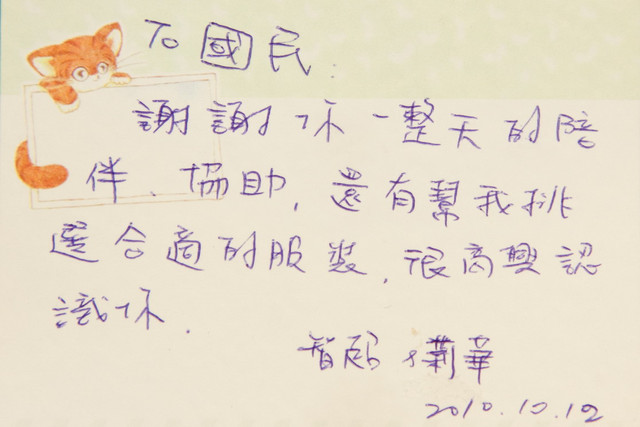 To 國民:
謝謝你一整天的陪
伴、協助,還有幫我挑
選合適的服裝,很高興認
識你.
智 莉華
2010.10.12